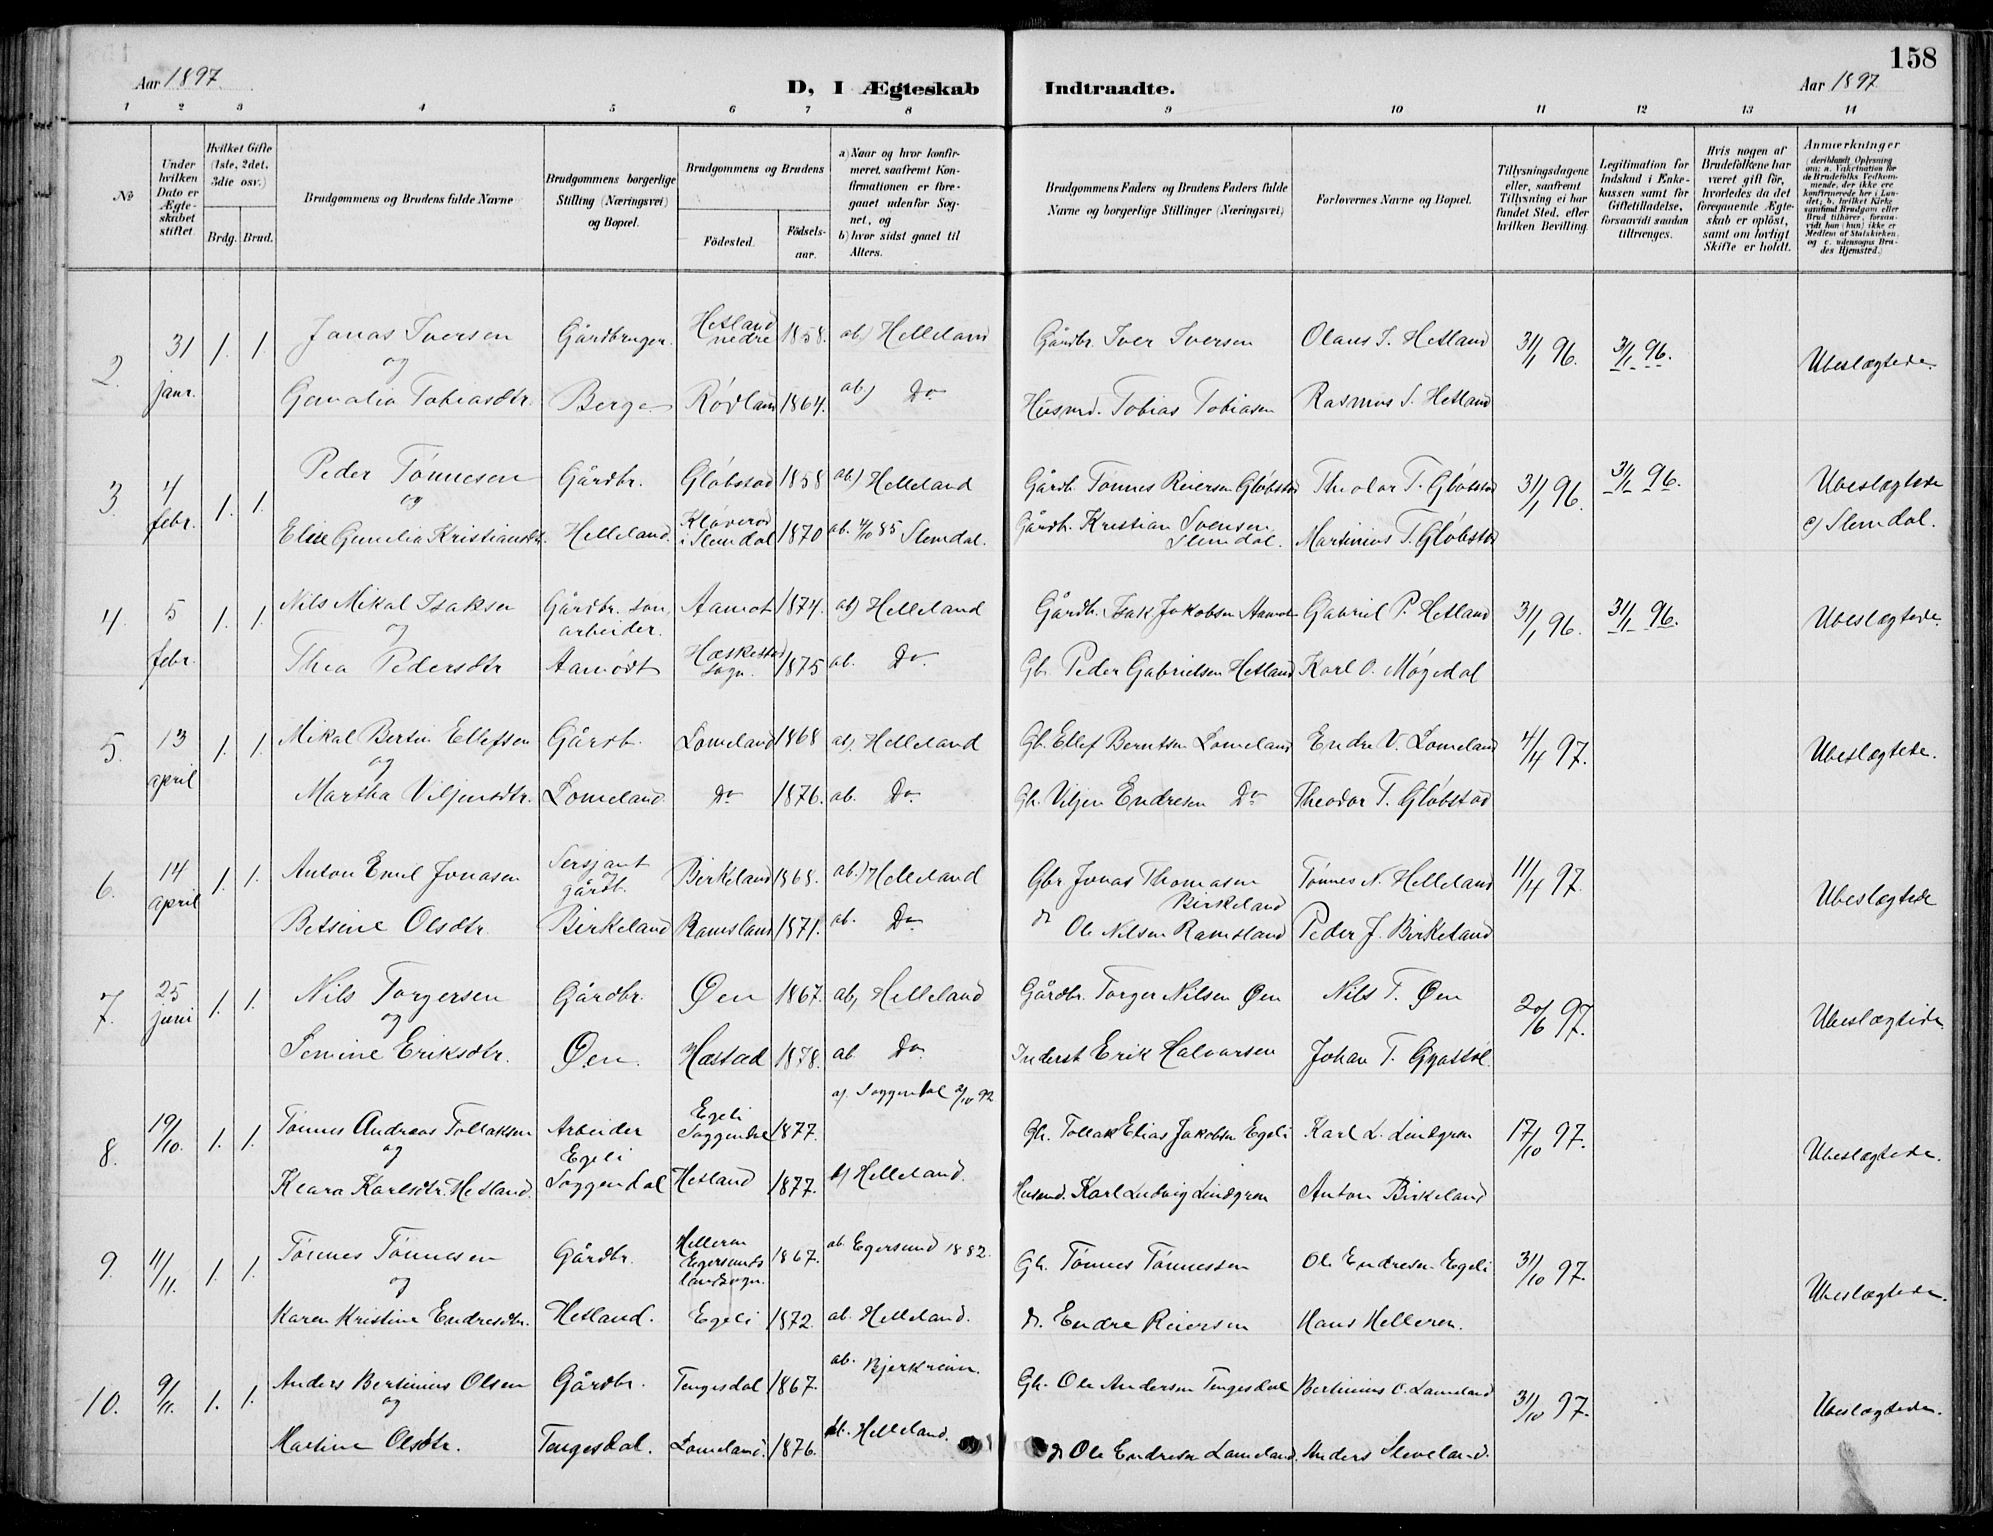 158
Aar 1897
D, I Ægteskab Indtraadte.
Aar 1897
1 2 3 4 5 6 7 8 9 10 11 12 13 14
№
Under hvilken Dato er Ægteskabet stiftet.
Hvilket Gifte (1ste, 2det, 3die osv.)
Brdg. Brud.
Brudgommens og Brudens fulde Navne
Brudgommens borgerlige Stilling (Næringsvei) og Bopæl.
Brudgommens og Brudens
Fødested.
Fødselsaar.
a) Naar og hvor konfirmeret, saafremt Konfirmationen er foregaaet udenfor Sognet, og
b) hvor sidst gaaet til Alters.
Brudgommens Faders og Brudens Faders fulde Navne og borgerlige Stillinger (Næringsvei)
Forlovernes Navne og Bopæl.
Tillysningsdagene eller, saafremt Tillysning ei har fundet Sted, efter hvilken Bevilling.
Legitimation for Indskud i Enkekassen samt for Giftetilladelse, forsaavidt saadan tiltrænges.
Hvis nogen af Brudefolkene har været gift før, hvorledes da det foregaaende Ægteskab er opløst, samt om lovligt Skifte er holdt.
Anmærkninger
(deriblandt Oplysning om: a. Vakcination for de Brudefolks Vedkommende, der ikke ere konfirmerede her i Landet; b. hvilket Kirkesamfund Brudgom eller Brud tilhører, forsaavidt han (hun) ikke er Medlem af Statskirken, og c. udensogns Brudes Hjemsted.)
2. 31 janr. 1. 1. Jonas Iversen Gårdbruger. Hetland nedre 1858. ab) Helleland Gårdbr. Iver Iversen Olaus S. Hetland 31/1 96. 31/1 96. Ubeslægtede
og
Gemalia Tobiasdtr. Berge Rødland 1864. ab) Do Husmd. Tobias Tobiasen Rasmus S. Hetland
3. 4 febr. 1. 1. Peder Tönnesen Gårdbr. Glöbstad 1858 ab) Helleland Gårdb. Tönnes Reiersen Glöbstad Theodor T. Glöbstad 31/1 96. 31/1 96. Ubeslægtede
og
Elise Gunelia Kristiansdtr. Helleland. Kløverod i Slemdal 1870 ab. 4/10 85 Slemdal. Gårdb. Kristian Svensen Slemdal. Martinius T. Glöbstad c) Slemdal.
4. 5 febr. 1. 1. Nils Mikal Isaksen Gårdbr. søn, arbeider. Aamot 1874. ab) Helleland Gårdb. Isak Jakobsen Aamot Gabriel P. Hetland 31/1 96. 31/1 96. Ubeslægtede.
og
Thea Pedersdtr Aamödt Hæskestad sogn. 1875 ab. Do. Gb. Peder Gabrielsen Hetland Karl O. Møgedal
5. 13 april 1. 1. Mikal Bertin Ellefsen Gårdb. Lomeland 1868 ab) Helleland Gb. Ellef Berntsen Lomeland Endre V. Lomeland 4/4 97. Ubeslægtede.
og
Martha Viljensdtr. Lomeland Do 1876. ab. Do. Gb. Viljen Endresen Do Theodor T. Glöbstad
6. 14 april 1. 1. Anton Emil Jonasen Sersjant og gårdb. Birkeland 1868. ab.) Helleland Gbr Jonas Thomasen Birkeland Tönnes N. Helleland 11/4 97. Ubeslægtede
Betsine Olsdtr. Birkeland Ramsland 1871. ab. Do. do Ole Nilsen Ramsland Peder J. Birkeland
7. 25 juni 1. 1. Nils Torgersen Gårdbr. Øen 1867. ab, Helleland Gårdbr. Torger Nilsen Øen Nils T. Øen 20/6 97. Ubeslægtede
og
Semine Eriksdtr. Øen. Hæstad 1878. ab Do. Inderst Erik Halvorsen Johan T.
8. 19/10. 1. 1. Tönnes Andreas Tollaksen Arbeider Egeli Soggendal 1877. a) Soggendal 2/10 92 Gb. Tollak Elias Jakobsen Egeli Karl L. Lindgren 17/10 97. Ubeslægtede.
og
Klara Karlsdtr. Hetland. Egeli Soggendal Hetland 1877. b) Helleland. Husmd. Karl Ludvig Lindgren Anton Birkeland
9. 11/11. 1. 1. Tönnes Tönnesen Gårdbr. Helleren Egersunds landsogn. 1867. ab. Egersund 1882. Gb. Tönnes Tönnessen Ole Endresen Egeli 31/10 97. Ubeslægtede.
og
Karen Kristine Endresdtr. Hetland. Egeli 1872. ab. Helleland. do. Endre Reiersen Hans Helleren.
10. 9/11. 1. 1. Anders Bertinius Olsen Gårdbr. Tengesdal 1867. ab. Bjerkreim. Gb. Ole Andersen Tengesdal Bertinius O. Lomeland 31/10 97. Ubeslægtede.
og
Martine Olsdtr. Tengesdal. Lomeland. 1876. ab. Helleland. do Ole Endresen Lomeland. Anders Sleveland.